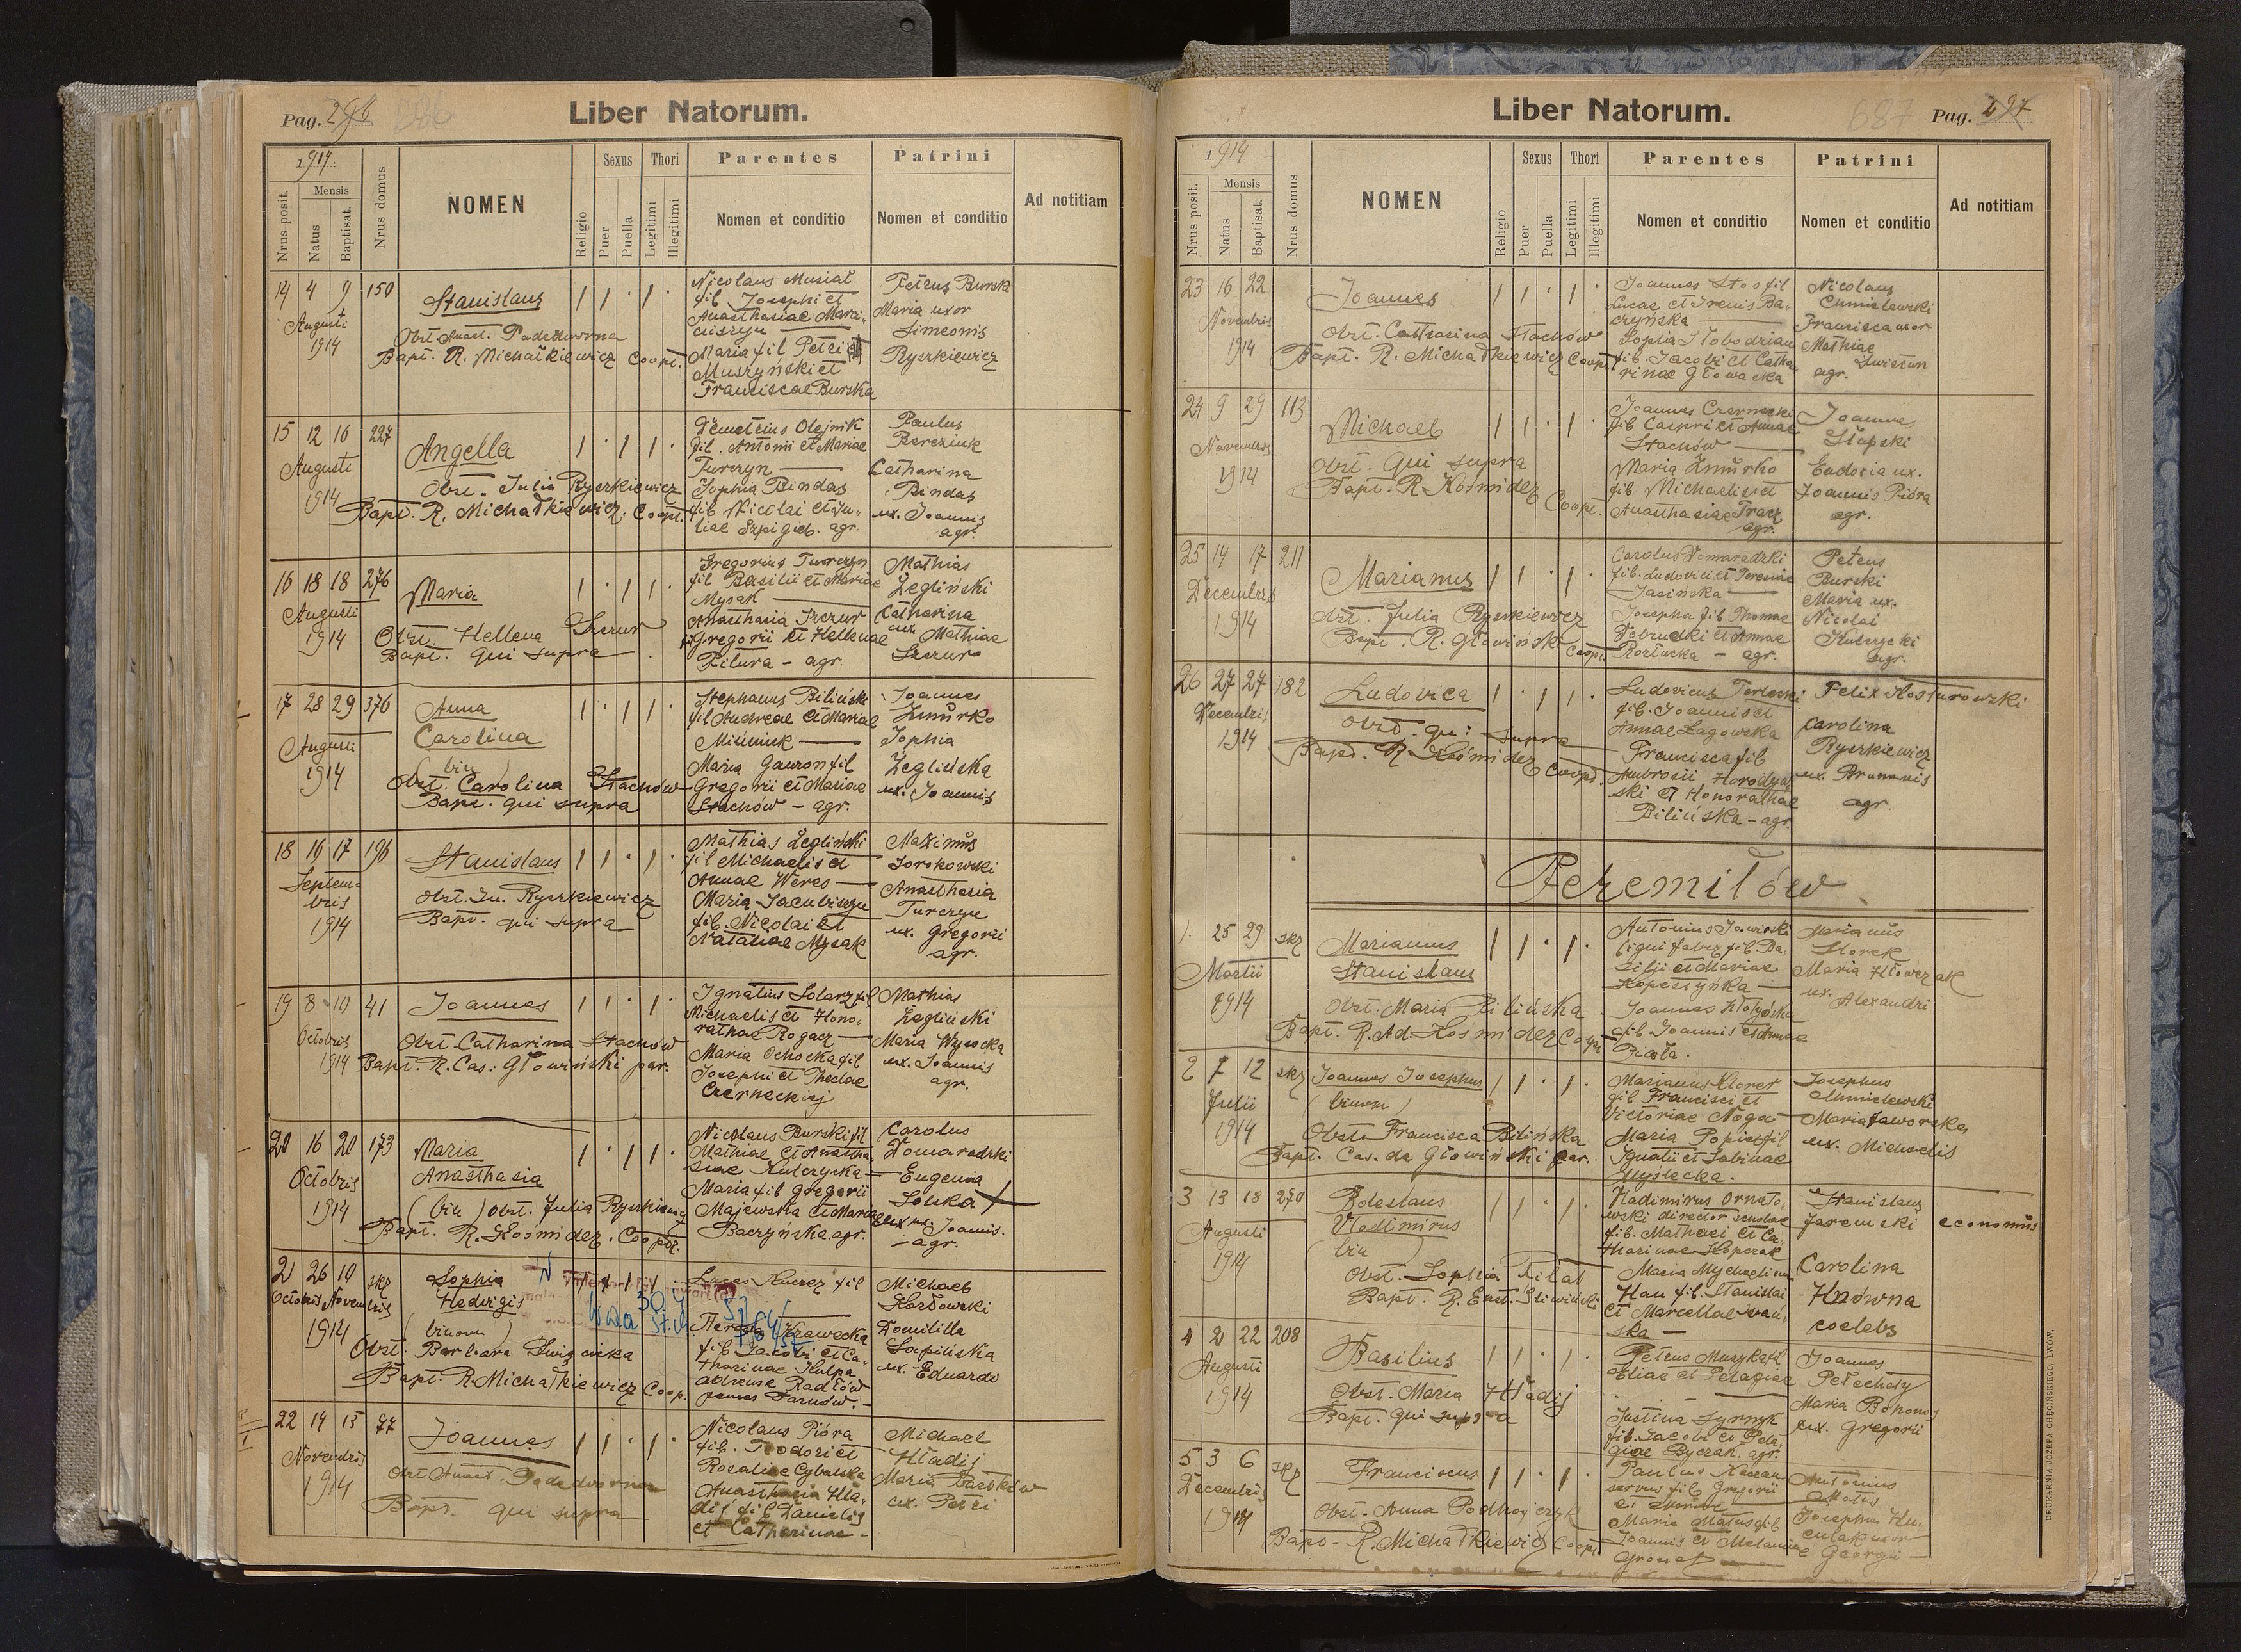 Pag. 296 686
Liber Natorum.
1914.
Nrus posit.
Mensis
Natus
Baptisat.
Nrus domus
NOMEN
Religio
Sexus
Puer
Puella
Thori
Legitimi
Illegitimi
Parentes
Nomen et conditio
Patrini
Nomen et conditio
Ad notitiam
14 4 9 150
Augusti
1914
Stanislaus
Obst. Anast. Padedworna
Bapt. R. Michałkiewicz Coopt.
1 1 · 1 ·
Nicolaus Musiał
fil Josephi et
Anasthasiae
Maria fil Petri
Muszyński et
Franciscae Burska
Petrus Burski
Maria uxor
Simeonis
Ryszkiewicz
15 12 16 227
Augusti
1914
Angella
Obst. Julia Ryszkiewicz
Bapt. R. Michałkiewicz Coopt.
1 · 1 1 ·
Demetrius Olejnik
fil. Antonii et Mariae
Turczyn
Sophia Bindas
fil Nicolai et Ju-
liae Szpigiel. agr.
Paulus
Bereziuk
Catharina
Bindas
ux. Joannis
agr.
16 18 18 276
Augusti
1914
Maria
Obst. Hellena Szczur
Bapt. qui supra
1 · 1 1 ·
Gregorius Turczyn
fil Basilii et Mariae
Mysak
Anasthasia Szczur
fil Gregorii et Hellenae
Pitura - agr.
Mathias
Żegliński
Catharina
ux. Mathiae
Szczur
17 28 29 376
Augusti
1914
Anna
Carolina
(bin)
Obst. Carolina Stachów
Bapt. qui supra
1 · 1 1 ·
Stephanus Biliński
fil Andreae et Mariae
Maria Gauron fil
Gregorii et Mariae
Stachów - agr.
Joannes
Żmurko
Sophia
Żeglińska
ux. Joannis
18 16 17 196
Septem-
bris
1914
Stanislaus
Obst. Ju. Ryszkiewicz
Bapt. qui supra
1 1 · 1 ·
Mathias Żegliński
fil Michaelis et
Annae Weres
Maria Jacubiszyn
fil. Nicolai et
Nataliae Mysak
Maximus
Sorokowski
Anasthasia
Turczyn
ux. Gregorii
agr.
19 8 10 41
Octobris
1914
Joannes
Obst. Catharina Stachów
Bapt. R. Cas. Głowiński par.
1 1 · 1 ·
Ignatius Solarz fil
Michaelis et Hono-
rathae Rogacz
Maria Ochocka fil
Josephi et Theclae
Czerneckiej
Mathias
Żegliński
Maria Wysocka
ux. Joannis
agr.
20 16 20 173
Octobris
1914
Maria
Anasthasia
(bin) Obst. Julia Ryszkiewicz
Bapt. R. Kośmider. Coopt.
1 · 1 1 ·
Nicolaus Burski fil
Mathiae et Anastha-
siae Kulczycka
Maria fil Gregorii
Majewska et Maria
Baczyńska. agr.
Carolus
Domaradzki
Eugenia
Solska
ux. Joannis.
agr.
21 26 10 skz
Octobris Novembris
1914
Sophia
Hedvigis
(binom)
Obst. Barbara
Bapt. R. Michałkiewicz Coop.
Lucas Kucrez fil
Krawecka
fil Jacobi et Ca-
tharinae Kulpa
Radłów
Tarnów.
Michael
Karłowski
Domitilla
Sapińska
ux. Eduardo
22 14 15 77
Novembris
1914
Joannes
Obst. Anast. Padedworna
Bapt. qui supra
1 1 · 1 ·
Nicolaus Pióra
fil. Teodori et
Rosaliae Cybulska
Anasthasia Hła-
dij fil Danielis
et Catharinae -
Michael
Hładij
Maria Bardków
ux. Petri
Liber Natorum.
687 Pag. 297
1914
Nrus posit.
Mensis
Natus
Baptisat.
Nrus domus
NOMEN
Religio
Sexus
Puer
Puella
Thori
Legitimi
Illegitimi
Parentes
Nomen et conditio
Patrini
Nomen et conditio
Ad notitiam
23 16 22
Novembris
1914
Joannes
Obst. Catharina Stachów
Bapt. R. Michałkiewicz Coopt.
1 1 · 1 ·
Joannes Stos fil
Lucae et Irenis Ba-
czyńska
Sophia Słobodzian
fil. Jacobi et Catha-
rinae Głowacka
Nicolaus
Chmielewski
Francisca uxor
Mathiae
agr.
24 9 29 113
Novembris
1914
Michael
Obst. qui supra
Bapt. R. Kośmider
Coopt.
1 1 · 1 ·
Joannes Czernecki
fil Caspri et Annae
Stachów
Maria Żmurko
fil Michaelis et
Anasthasiae Tracz
agr.
Joannes
Słapski
Eudoxia ux.
Joannis Pióra
agr.
25 14 17 211
Decembris
1914
Marianus
Obst. Julia Ryszkiewicz
Bapt. R. Głowiński Coopt.
1 1 · 1 ·
Carolus Domaradzki
fil. Ludovici et Teresiae
Jasińska
Josepha fil Thomae
Dobrucki et Annae
Rozłucka - agr.
Petrus
Burski
Maria ux.
Nicolai
Kulczycki
agr.
26 27 27 182
Decembris
1914
Ludovica
Obst. qui supra
Bapt. R. Kośmider Coopt.
1 · 1 1 ·
Ludovicus Terlecki
fil. Joannis et
Annae Łagowska
Francisca fil
Ambrosii Horodyń-
ski et Honorathae
Bilińska - agr.
Felix Kosturowski
Carolina
Ryszkiewicz
ux. Brunonis
agr.
Peremiłów
1. 25 29 skz
Martii
1914
Marianus
Stanislaus
Obst. Maria Bilińska
Bapt. R. Ad. Kośmider Coopt.
1 1 · 1 ·
Antonius Jaworski
ligni faber fil. Ba-
silii et Mariae
Kopestyńka
fil. Joannis et Annae
Biała.
Marianus
Storek
Maria Hłowczak
ux. Alexandri
2 7 12 skz
Julii
1914
Joannes Josephus
(binom)
Obst. Francisca Bilińska
Bapt. Cas. da Głowiński par.
1 1 · 1 ·
Marianus Storek
fil Francisci et
Victoriae Noga
Maria Popiel fil
Ignatii et Sabinae
Myślecka.
Josephus
Chmielewski
Maria Jaworska
ux. Michaelis
3 13 18 270
Augusti
1914
Boleslaus
Vladimirus
(bin)
Obst. Sophia Pilat
Bapt. R. Eust. Śliwiński
1 1 · 1 ·
Vladimirus Ornato-
wski director scholae
fil. Mathaei et Ca-
tharinae Kopczak
Maria Mychaelina
Hnu fil. Stanislai
et Marcellae Iwań-
ska -
Stanislaus
Jaremski economus
Carolina
Hnówna
coelebs
4 2 22 208
Augusti
1914
Basilius
Obst. Maria Hładij
Bapt. qui supra
1 1 · 1 ·
Petrus Muzyka fil
Eliae et Pelagiae
Justina Syrnyk
fil. Jacobi et Pela-
giae Byczak. agr.
Joannes
Pełechaty
Maria Bohonos
ux. Gregorii
5 3 6 skz
Decembris
1914
Franciscus
Obst. Anna Podhajczyk
Bapt. R. Michałkiewicz Coopt.
1 1 · 1 ·
Paulus
servus fil Gregorii
Maria Matus fil
Joannis et Melaniae
Antonius
Matus
uxor
Georgii
DRUKARNIA JÓZEFA CHĘCIŃSKIEGO, LWÓW.